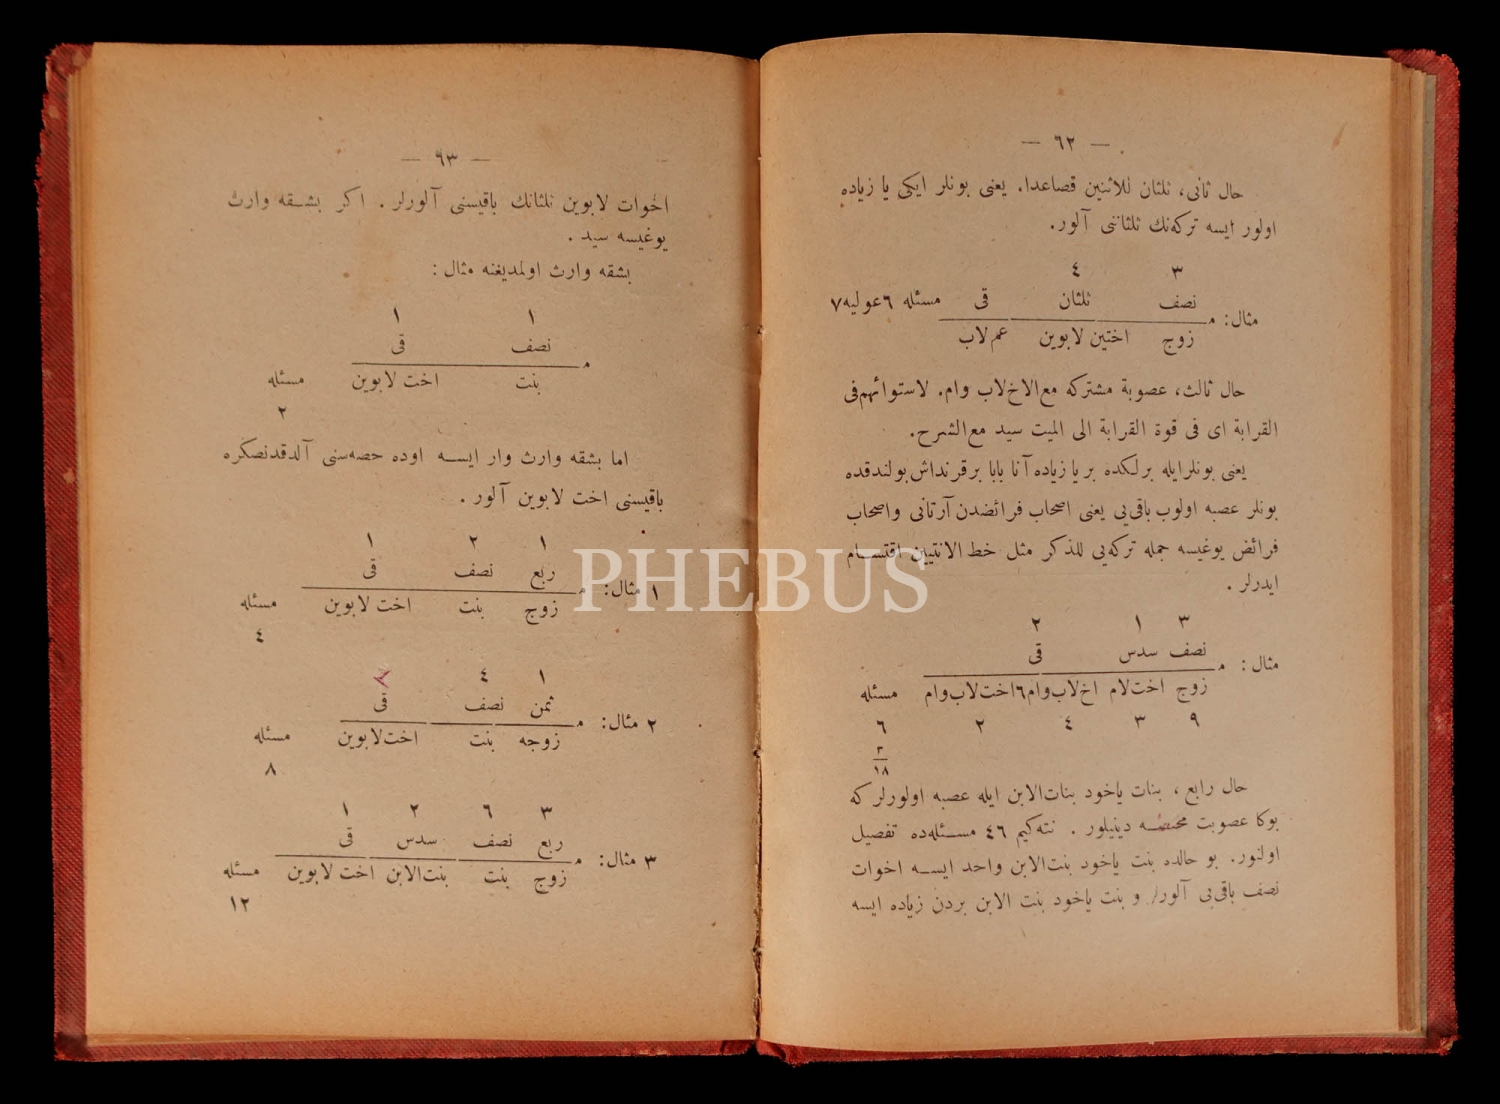 — ٦٢ —
حال ثانى، ثلثان للاثنين فصاعدا. يعنى بونلر ايكى يا زياده
اولور ايسه تركه‌نك ثلثاننى آلور.
٣ ٤
مثال: م نصف ثلثان قى مسئله ٦ عوليه ٧
زوج اختين لابوين عم لاب
حال ثالث، عصوبة مشتركه مع الاخ لاب وام. لاستوائهم فى
القرابة اى فى قوة القرابة الى الميت سيد مع الشرح.
يعنى بونلر ايله برلكده بر يا زياده آنا بابا بر قرنداش بولندقده
بونلر عصبه اولوب باقى‌يى يعنى اصحاب فرائضدن آرتانى واصحاب
فرائض يوغيسه جمله تركه‌يى للذكر مثل خط الانثيين اقتسام
ايدرلر .
٣ ١ ٢
مثال: م نصف سدس قى
زوج اخت لام اخ لاب وام ٦ اخت لاب وام مسئله
٩ ٣ ٤ ٢ ٦
٣
١٨
حال رابع ، بنات ياخود بنات الابن ايله عصبه اولورلر كه
بوكا عصوبت محضه دينيلور . نته‌كيم ٤٦ مسئله‌ده تفصيل
اولنور. بو حالده بنت ياخود بنت الابن واحد ايسه اخوات
نصف باقى‌يى آلور / و بنت ياخود بنت الابن بردن زياده ايسه
— ٦٣ —
اخوات لابوين ثلثانك باقيسنى آلورلر . اكر بشقه وارث
يوغيسه سيد .
بشقه وارث اولمديغنه مثال :
١ ١
م نصف قى
بنت اخت لابوين مسئله
٢
اما بشقه وارث وار ايسه اوده حصه‌سنى آلدقدنصكره
باقيسنى اخت لابوين آلور .
١ ٢ ١
١ مثال: م ربع نصف قى
زوج بنت اخت لابوين مسئله
٤
١ ٤ ٣
٢ مثال: م ثمن نصف قى
زوجه بنت اخت لابوين مسئله
٨
٣ ٦ ٢ ١
٣ مثال: م ربع نصف سدس قى
زوج بنت بنت الابن اخت لابوين مسئله
١٢
PHEBUS